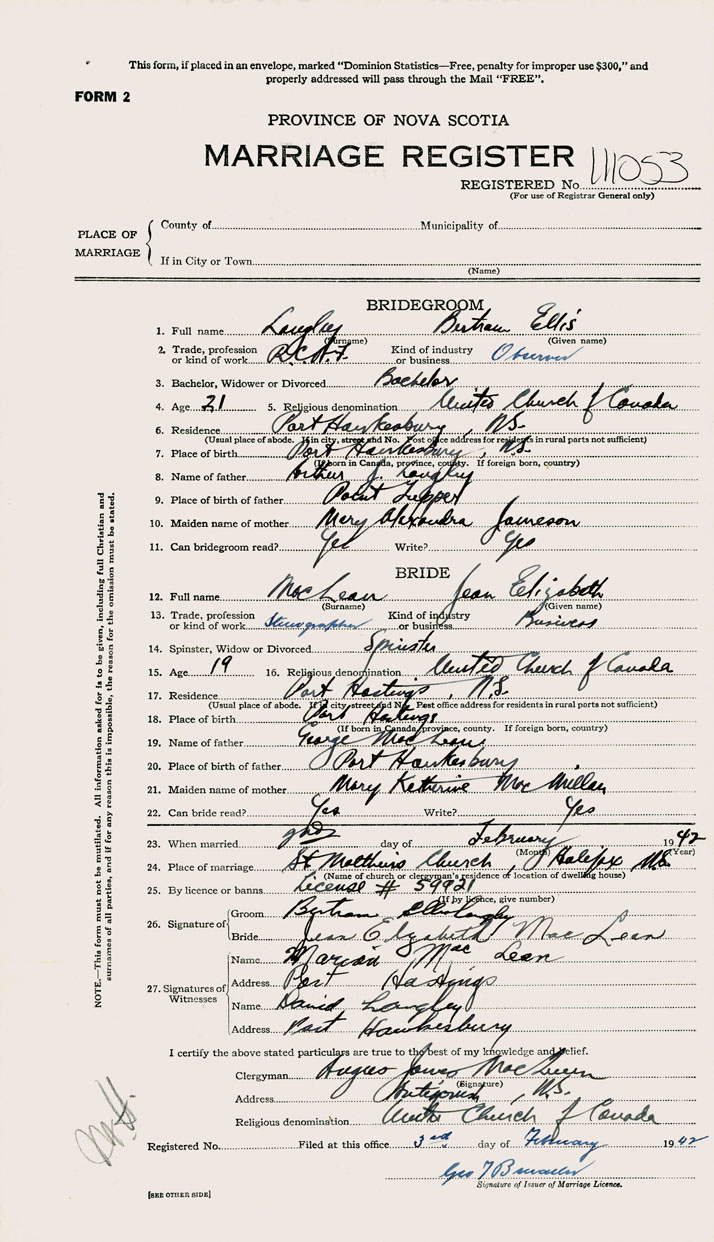 This form, if placed in an envelope, marked "Dominion Statistics—Free, penalty for improper use $300," and
properly addressed will pass through the Mail "FREE".
FORM 2
PROVINCE OF NOVA SCOTIA
MARRIAGE REGISTER
REGISTERED No. 111053
(For use of Registrar General only)
PLACE OF MARRIAGE
County of Municipality of
If in City or Town
(Name)
BRIDEGROOM
1. Full name Langley Bertram Ellis
(Surname) (Given name)
2. Trade, profession or kind of work R.C.A.F. Kind of industry or business Observer
3. Bachelor, Widower or Divorced Bachelor
4. Age 21 5. Religious denomination United Church of Canada
6. Residence Port Hawkesbury, N.S.
(Usual place of abode. If in city, street and No. Post office address for residents in rural parts not sufficient)
7. Place of birth Port Hawkesbury, N.S.
(If born in Canada, province, county. If foreign born, country)
8. Name of father Arthur J. Langley
9. Place of birth of father Point Tupper
10. Maiden name of mother Mary Alexandra Jameson
11. Can bridegroom read? Yes Write? Yes
BRIDE
12. Full name MacLean Jean Elizabeth
(Surname) (Given name)
13. Trade, profession or kind of work Stenographer Kind of industry or business Business
14. Spinster, Widow or Divorced Spinster
15. Age 19 16. Religious denomination United Church of Canada
17. Residence Port Hastings, N.S.
(Usual place of abode. If in city, street and No. Post office address for residents in rural parts not sufficient)
18. Place of birth Port Hastings
(If born in Canada, province, county. If foreign born, country)
19. Name of father George MacLean
20. Place of birth of father Port Hawkesbury
21. Maiden name of mother Mary Katherine MacMillan
22. Can bride read? Yes Write? Yes
23. When married day of February 1942
(Month) (Year)
24. Place of marriage St. Matthews Church, Halifax N.S.
(Name of church or clergyman's residence or location of dwelling house)
25. By licence or banns License # 59921
(If by licence, give number)
26. Signature of
Groom Bertram Ellis Langley
Bride Jean Elizabeth MacLean
27. Signatures of Witnesses
Name Marion MacLean
Address Port Hastings
Name David Langley
Address Port Hawkesbury
I certify the above stated particulars are true to the best of my knowledge and belief.
Clergyman James Mac
(Signature)
Address Antigonish, N.S.
Religious denomination United Church of Canada
Registered No. Filed at this office 3rd day of February 1942
Geo T
Signature of Issuer of Marriage Licence.
[SEE OTHER SIDE]
NOTE.—This form must not be mutilated. All information asked for is to be given, including full Christian and
surnames of all parties, and if for any reason this is impossible, the reason for the omission must be stated.